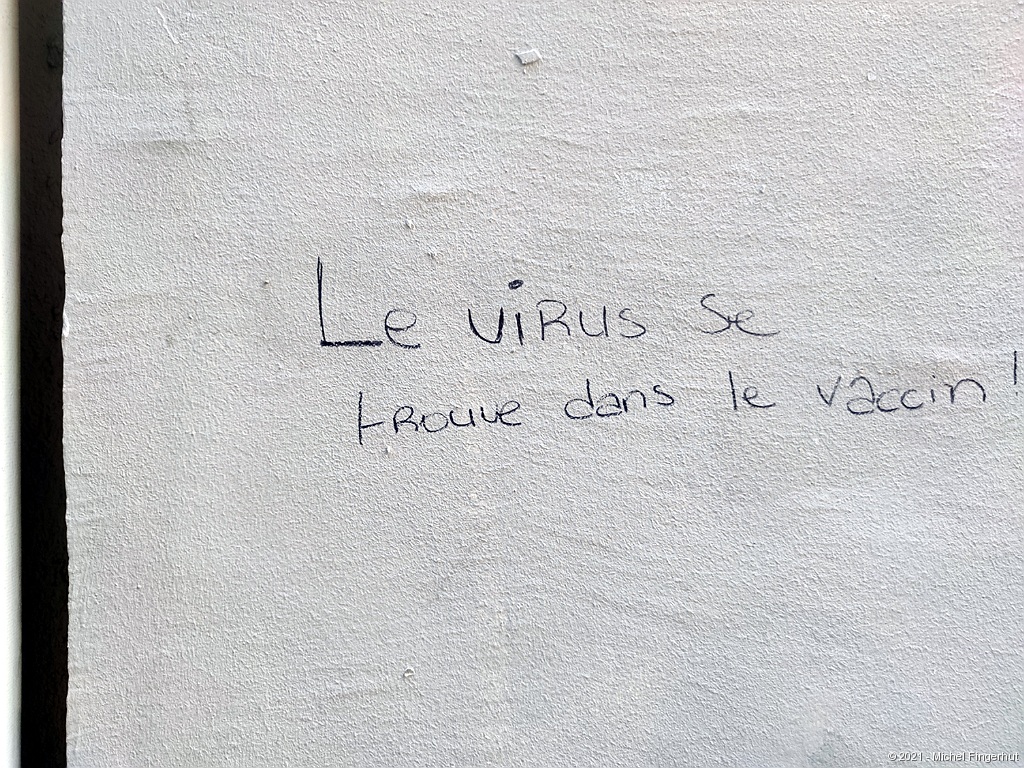 Le virus se
trouve dans le vaccin !
© 2021 - Michel Fingerhut